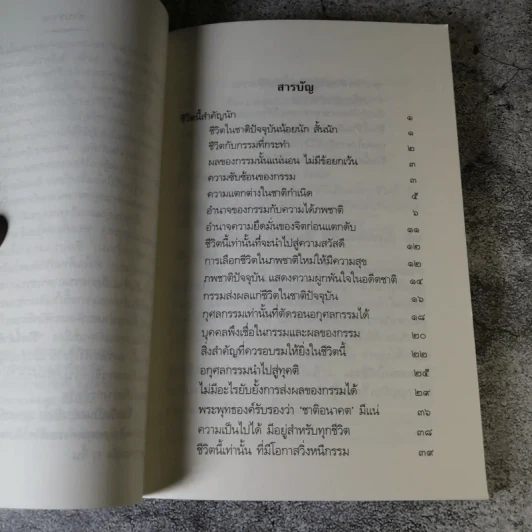 สารบัญ
ชีวิตนี้สำคัญนัก ๑
ชีวิตในชาติปัจจุบันน้อยนัก สั้นนัก ๑
ชีวิตกับกรรมที่กระทำ ๒
ผลของกรรมนั้นแน่นอน ไม่มีข้อยกเว้น ๓
ความซับซ้อนของกรรม ๓
ความแตกต่างในชาติกำเนิด ๕
อำนาจของกรรมกับความได้ภพชาติ ๖
อำนาจความยึดมั่นของจิตก่อนแตกดับ ๑๑
ชีวิตนี้เท่านั้นที่จะนำไปสู่ความสวัสดี ๑๒
การเลือกชีวิตในภพชาติใหม่ให้มีความสุข ๑๒
ภพชาติปัจจุบัน แสดงความผูกพันใจในอดีตชาติ ๑๔
กรรมส่งผลแก่ชีวิตในชาติปัจจุบัน ๑๖
กุศลกรรมเท่านั้นที่ตัดรอนอกุศลกรรมได้ ๑๘
บุคคลพึงเชื่อในกรรมและผลของกรรม ๒๐
สิ่งสำคัญที่ควรอบรมให้ยิ่งในชีวิตนี้ ๒๒
อกุศลกรรมนำไปสู่ทุคติ ๒๕
ไม่มีอะไรยับยั้งการส่งผลของกรรมได้ ๒๙
พระพุทธองค์รับรองว่า 'ชาติอนาคต' มีแน่ ๓๖
ความเป็นไปได้ มีอยู่สำหรับทุกชีวิต ๓๘
ชีวิตนี้เท่านั้น ที่มีโอกาสวิ่งหนีกรรม ๓๙